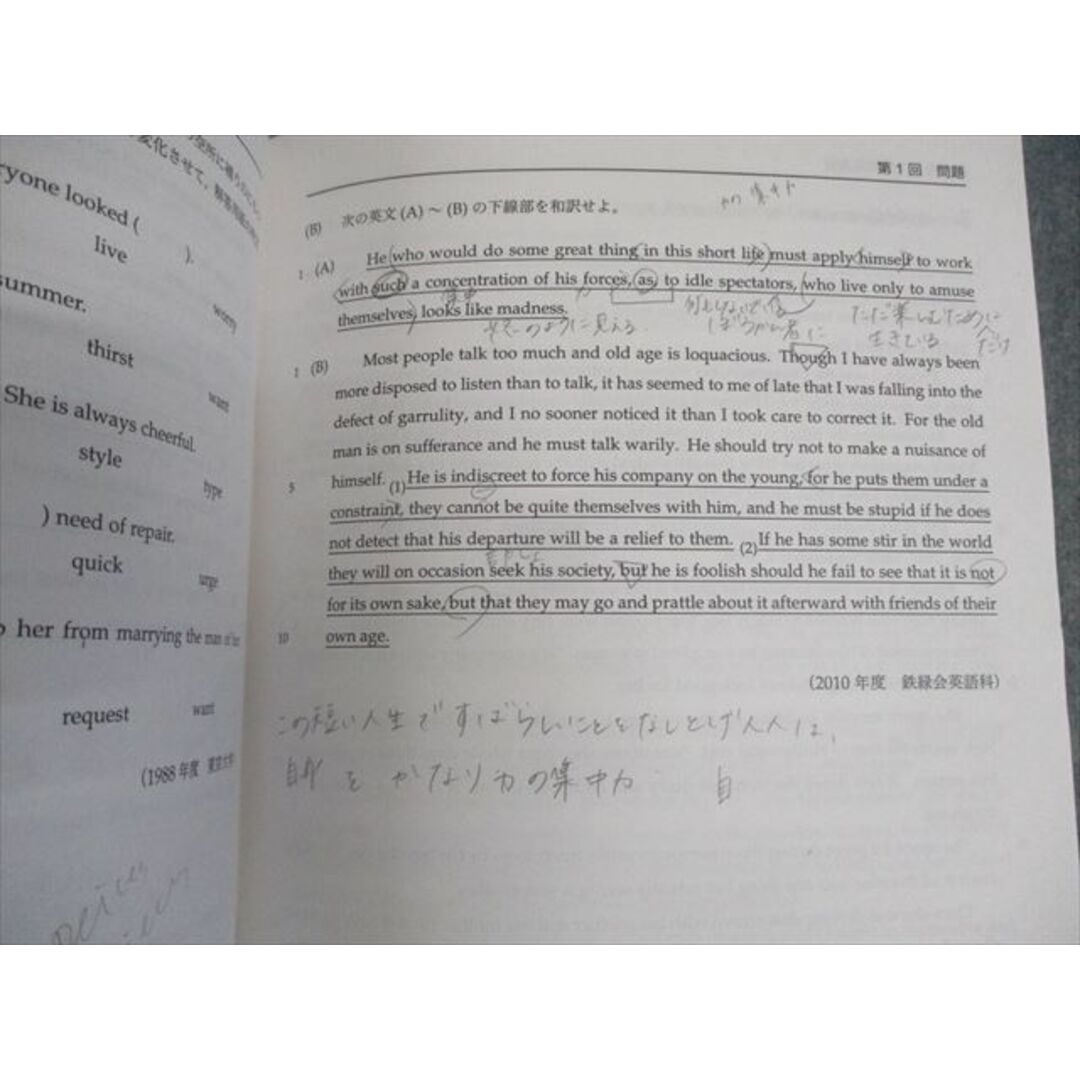 変化させて、
yone looked (
).
live
worry
summer.
thirst
want
She is always cheerful.
style
type
) need of repair.
quick
urge
her from marrying the man of her
request
want
(1988年度 東京大学
第1回 問題
か 集中
(B) 次の英文(A)～(B)の下線部を和訳せよ。
1 (A) He who would do some great thing in this short life must apply himself to work
with such a concentration of his forces, as, to idle spectators, who live only to amuse
themselves, looks like madness.
のように見える
ただ楽しむために
生きている
だけ
1 (B) Most people talk too much and old age is loquacious. Though I have always been
more disposed to listen than to talk, it has seemed to me of late that I was falling into the
defect of garrulity, and I no sooner noticed it than I took care to correct it. For the old
man is on sufferance and he must talk warily. He should try not to make a nuisance of
5 himself. (1)He is indiscreet to force his company on the young, for he puts them under a
constraint, they cannot be quite themselves with him, and he must be stupid if he does
not detect that his departure will be a relief to them. (2)If he has some stir in the world
they will on occasion seek his society, but he is foolish should he fail to see that it is not
for its own sake, but that they may go and prattle about it afterward with friends of their
10 own age.
(2010年度 鉄緑会英語科)
この短い人生ですばらしいことをなしとげ人人は、
自分を かなり力の集中力 自